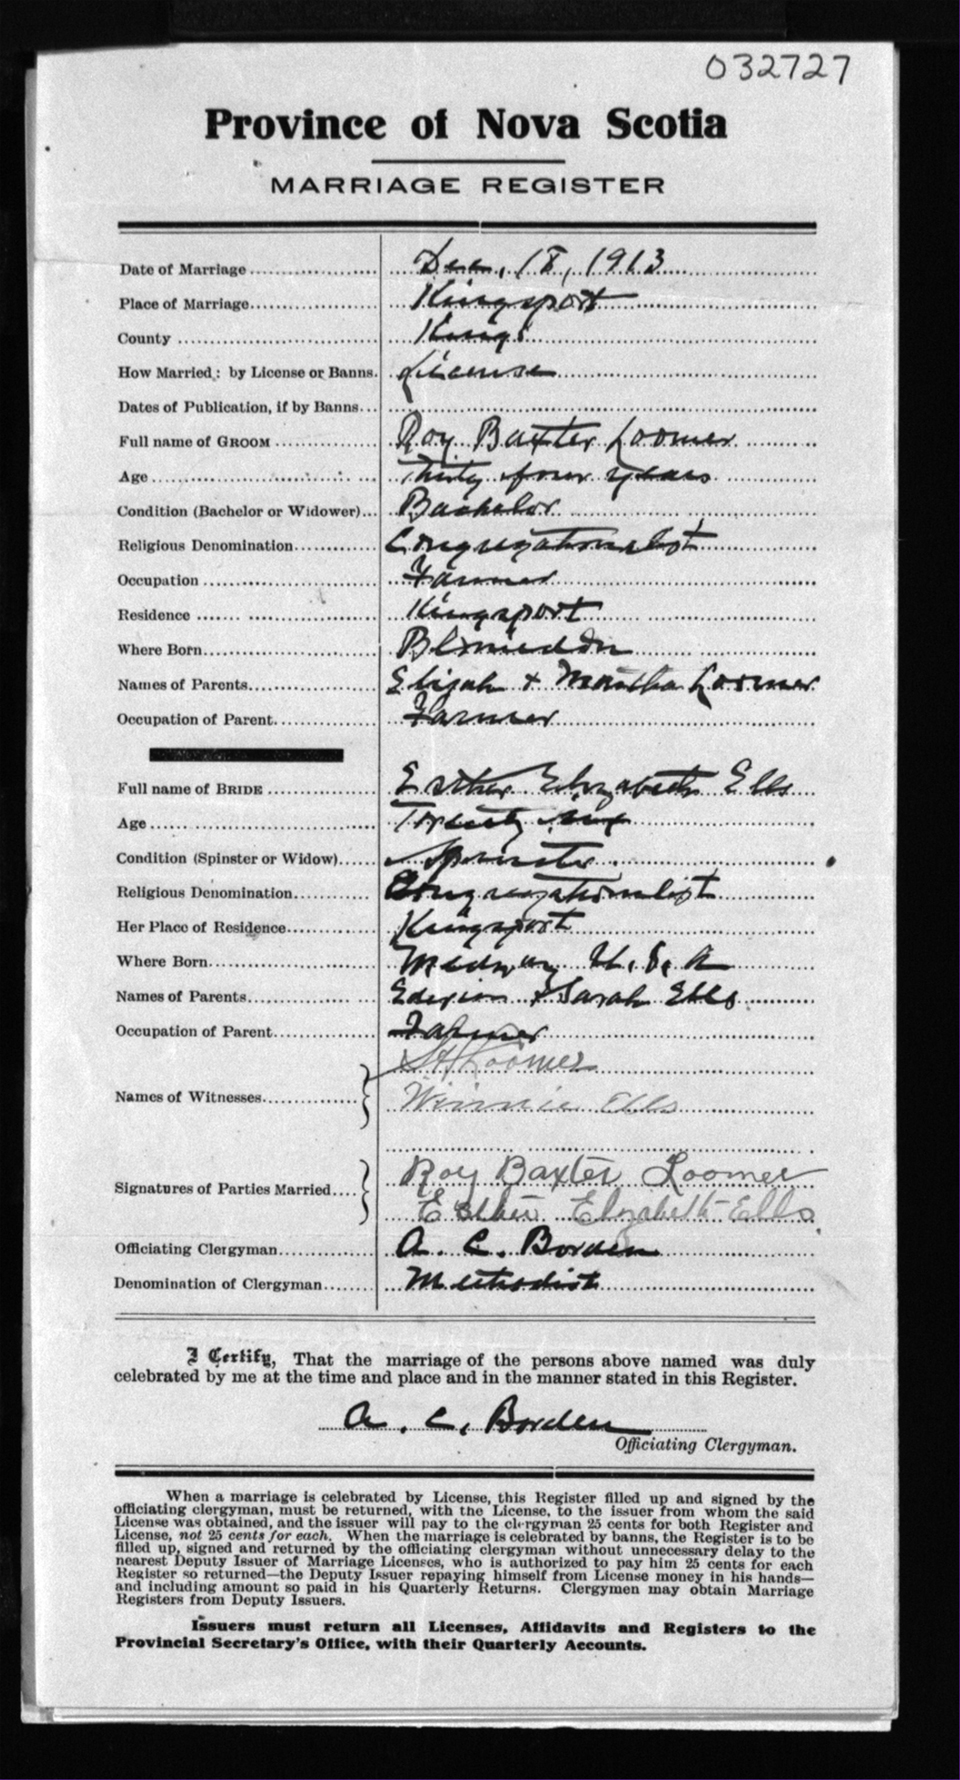 032727
Province of Nova Scotia
MARRIAGE REGISTER
Date of Marriage Dec, 18, 1913
Place of Marriage Kingsport
County Kings
How Married: by License or Banns. License
Dates of Publication, if by Banns
Full name of GROOM Roy Baxter Loomer
Age Thirty four years
Condition (Bachelor or Widower) Bachelor
Religious Denomination Congregationalist
Occupation Farmer
Residence Kingsport
Where Born Blomiddon
Names of Parents Elijah + Martha Loomer
Occupation of Parent Farmer
Full name of BRIDE Esther Elizabeth Ells
Age Twenty six
Condition (Spinster or Widow) Spinster
Religious Denomination Congregationalist
Her Place of Residence Kingsport
Where Born Medway U.S.A
Names of Parents + Sarah Ells
Occupation of Parent Farmer
Loomer
Names of Witnesses Winnie Ells
Roy Baxter Loomer
Signatures of Parties Married
Esther Elizabeth Ells
Officiating Clergyman A. C. Borden
Denomination of Clergyman Methodist
I Certify, That the marriage of the persons above named was duly
celebrated by me at the time and place and in the manner stated in this Register.
A. C. Borden
Officiating Clergyman.
When a marriage is celebrated by License, this Register filled up and signed by the
officiating clergyman, must be returned, with the License, to the issuer from whom the said
License was obtained, and the issuer will pay to the clergyman 25 cents for both Register and
License, not 25 cents for each. When the marriage is celebrated by banns, the Register is to be
filled up, signed and returned by the officiating clergyman without unnecessary delay to the
nearest Deputy Issuer of Marriage Licenses, who is authorized to pay him 25 cents for each
Register so returned—the Deputy Issuer repaying himself from License money in his hands—
and including amount so paid in his Quarterly Returns. Clergymen may obtain Marriage
Registers from Deputy Issuers.
Issuers must return all Licenses, Affidavits and Registers to the
Provincial Secretary's Office, with their Quarterly Accounts.